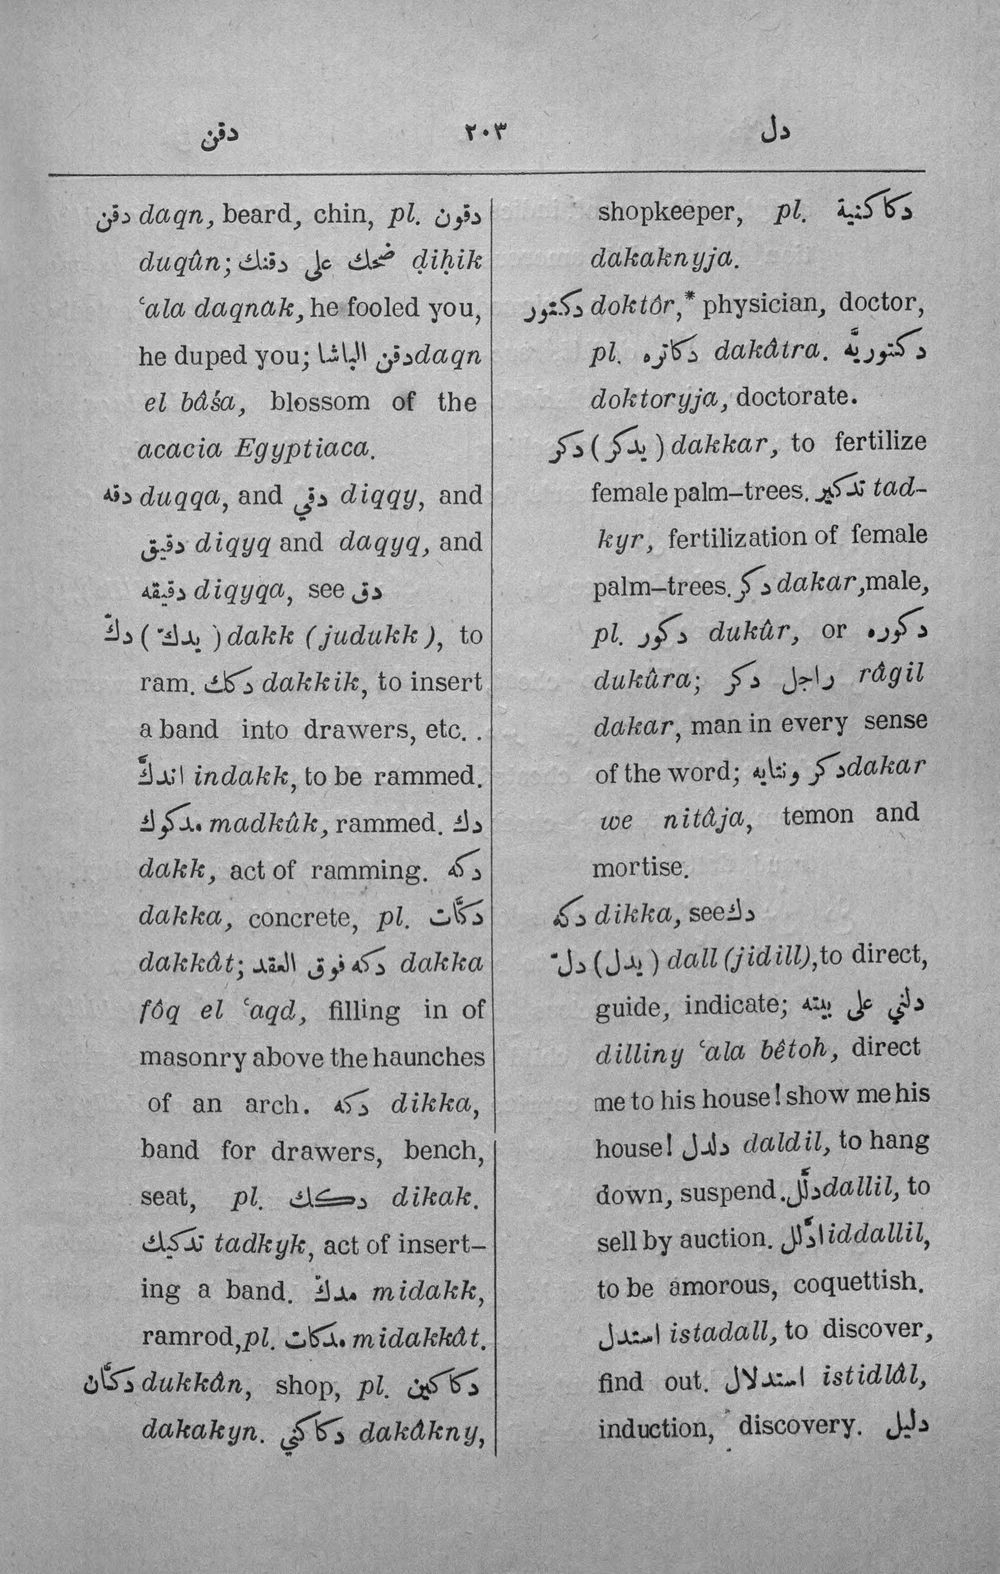 دقن ٢٠٣ دل
دقن daqn, beard, chin, pl. دقون
duqûn; ضحك على دقنك ḍiḥik
ʿala daqnak, he fooled you,
he duped you; دقن الباشا daqn
el bâśa, blossom of the
acacia Egyptiaca.
دقه duqqa, and دقي diqqy, and
دقيق diqyq and daqyq, and
دقيقه diqyqa, see دق
دكّ (يدكّ) dakk (judukk), to
ram. دكك dakkik, to insert
a band into drawers, etc. .
اندكَّ indakk, to be rammed.
مدكوك madkûk, rammed. دك
dakk, act of ramming. دكه
dakka, concrete, pl. دكَّات
dakkât; دكه فوق العقد dakka
fôq el ʿaqd, filling in of
masonry above the haunches
of an arch. دكه dikka,
band for drawers, bench,
seat, pl. دكك dikak.
تدكيك tadkyk, act of insert–
ing a band. مدكّ midakk,
ramrod, pl. مدكات midakkât.
دكَّان dukkân, shop, pl. دكاكين
dakakyn. دكاكني dakâkny,
shopkeeper, pl. دكاكنية
dakaknyja.
دكتور doktôr,* physician, doctor,
pl. دكاتره dakâtra. دكتوريَّه
doktoryja, doctorate.
دكر (يدكر) dakkar, to fertilize
female palm–trees. تدكير tad–
kyr, fertilization of female
palm–trees. دكر dakar, male,
pl. دكور dukûr, or دكوره
dukûra; راجل دكر râgil
dakar, man in every sense
of the word; دكر ونتايه dakar
we nitâja, temon and
mortise.
دكه dikka, see دك
دلّ (يدل) dall (jidill), to direct,
guide, indicate; دلني على بيته
dilliny ʿala bêtoh, direct
me to his house! show me his
house! دلدل daldil, to hang
down, suspend. دلَّل dallil, to
sell by auction. ادَّلل iddallil,
to be amorous, coquettish.
استدل istadall, to discover,
find out. استدلال istidlâl,
induction, discovery. دليل